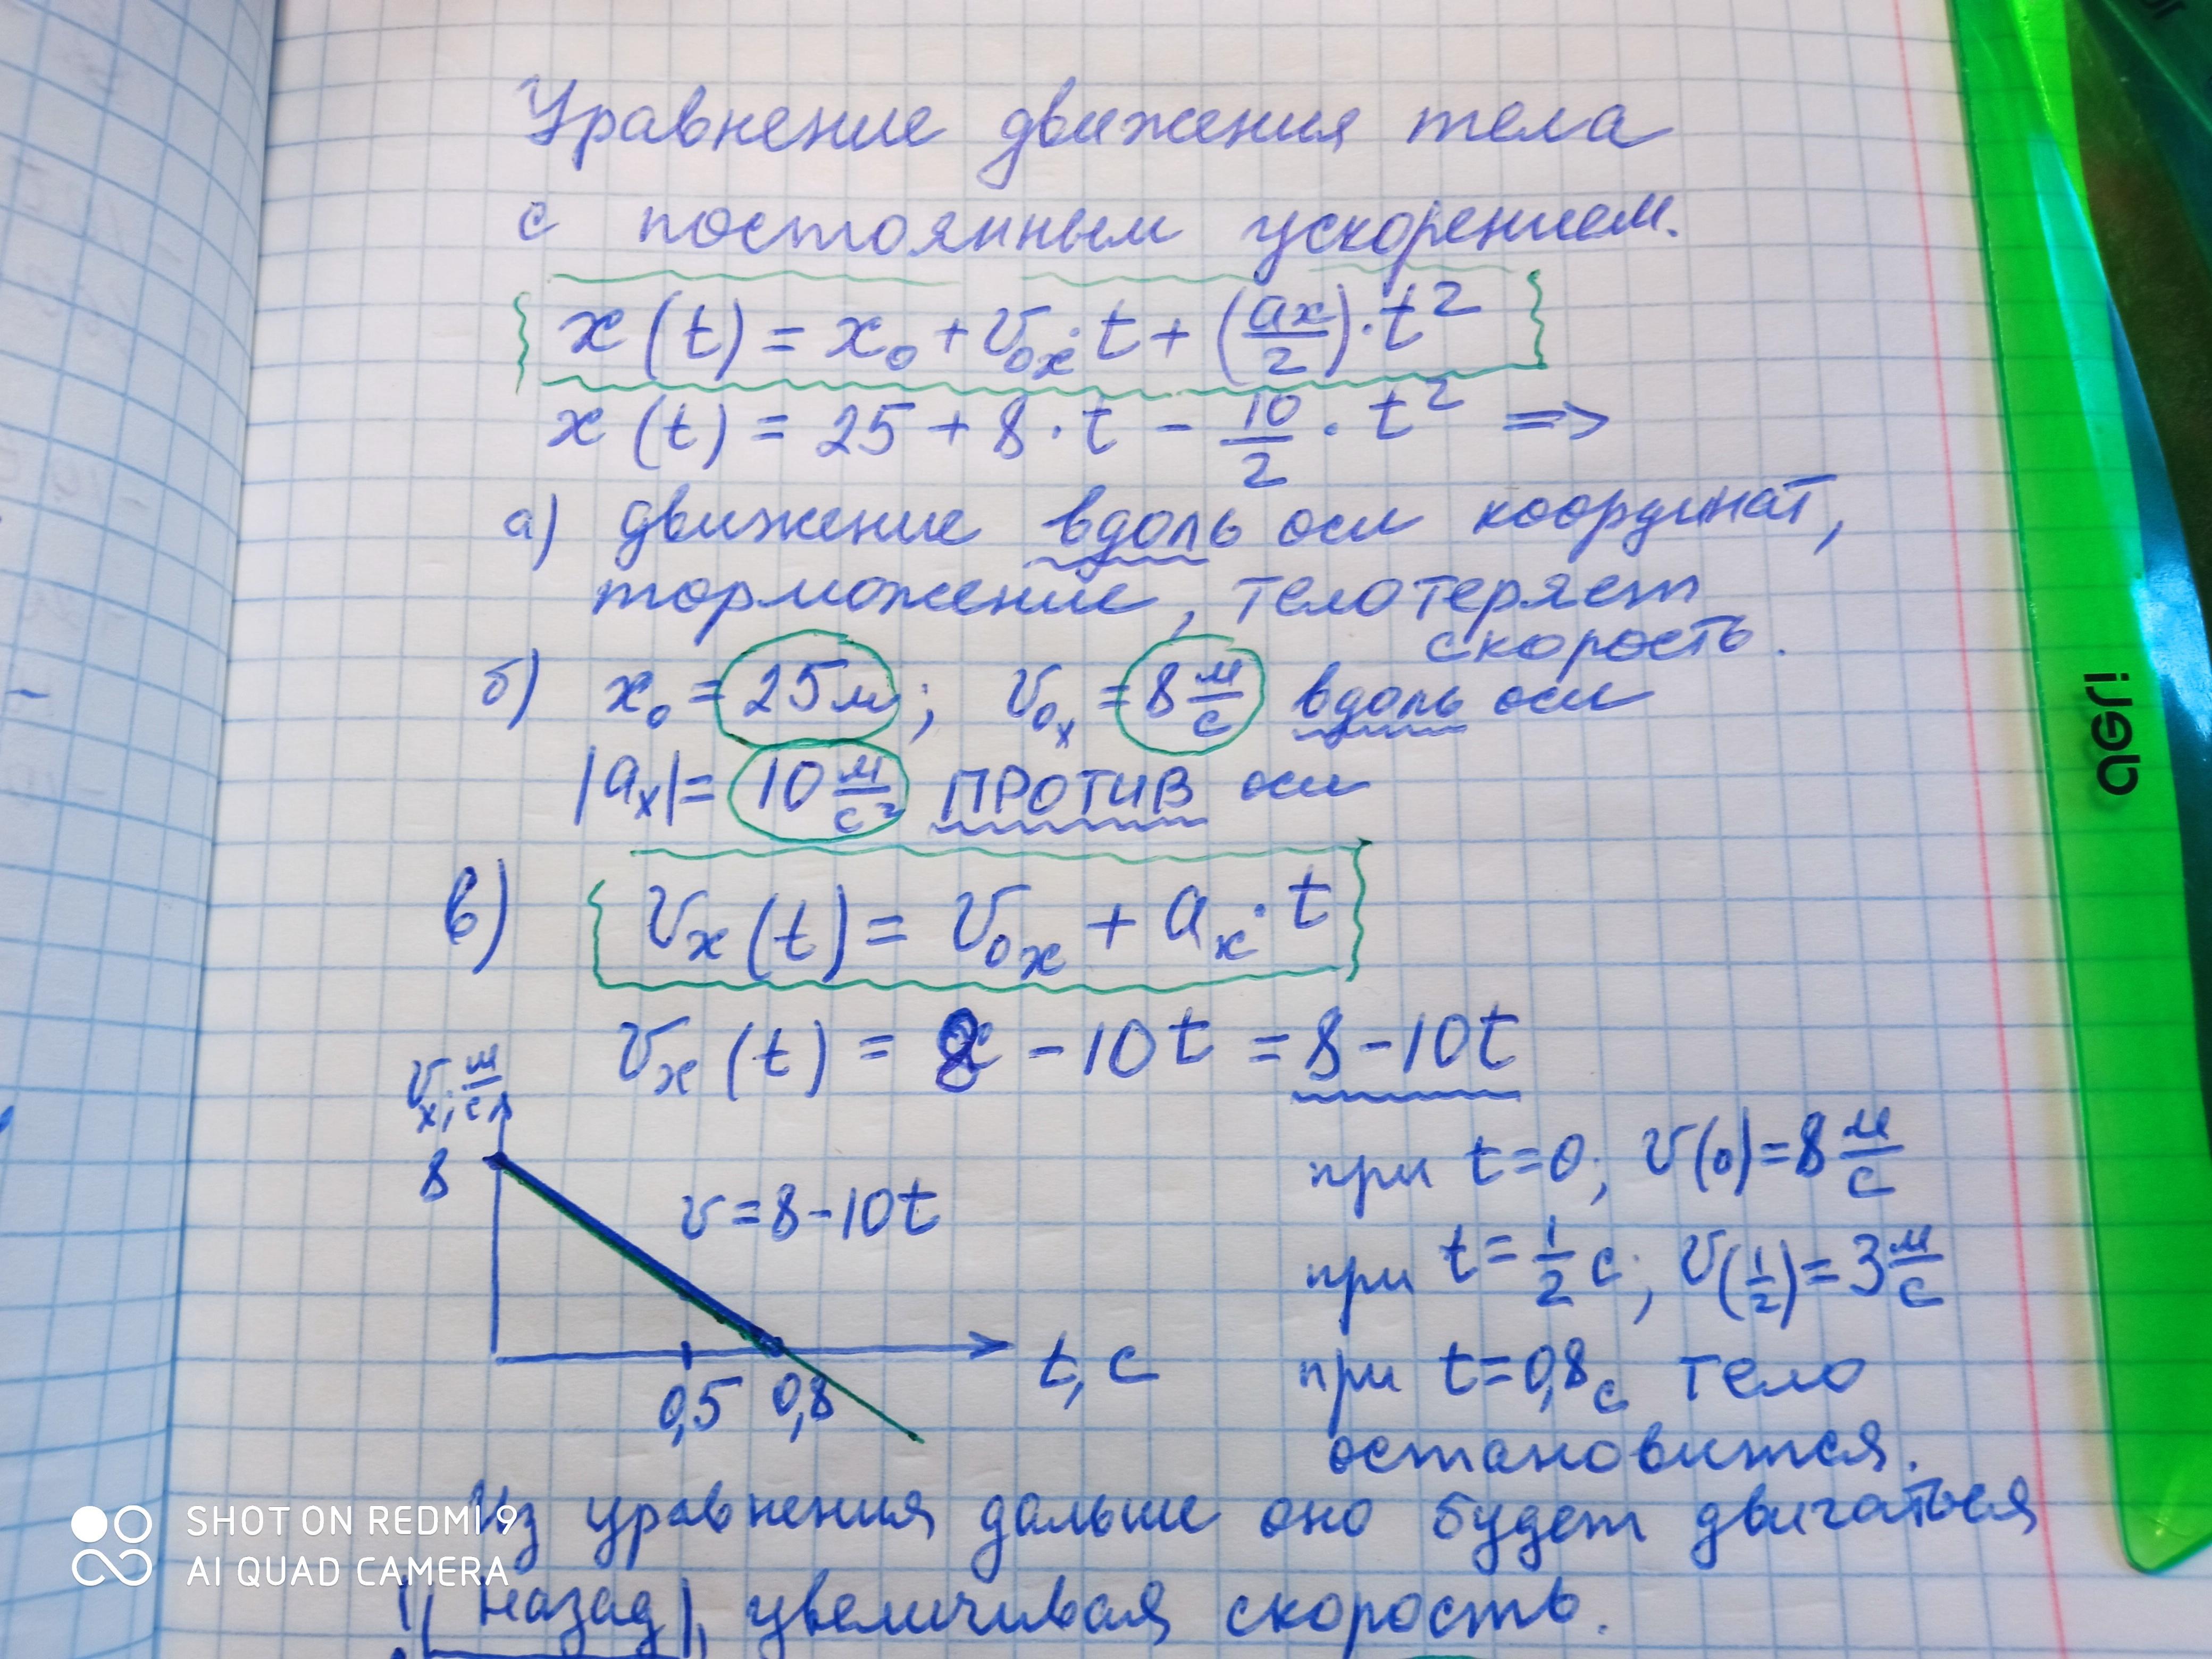 Уравнение движения тела
с постоянным ускорением.
x(t) = x₀ + v₀ₓ·t + (aₓ/2)·t²
x(t) = 25 + 8·t - 10/2·t² =>
а) движение вдоль оси координат,
торможение, тело теряет
скорость.
б) x₀ = 25м; v₀ₓ = 8 м/с вдоль оси
|aₓ| = 10 м/с² ПРОТИВ оси
в) vₓ(t) = v₀ₓ + aₓ·t
vₓ(t) = 8 - 10t = 8 - 10t
vₓ; м/с
8
v = 8 - 10t
0,5 0,8
t, с
при t = 0; v(0) = 8 м/с
при t = 1/2 с; v(1/2) = 3 м/с
при t = 0,8 с тело
остановится.
Из уравнения дальше оно будет двигаться
назад, увеличивая скорость.
deli
SHOT ON REDMI 9
AI QUAD CAMERA